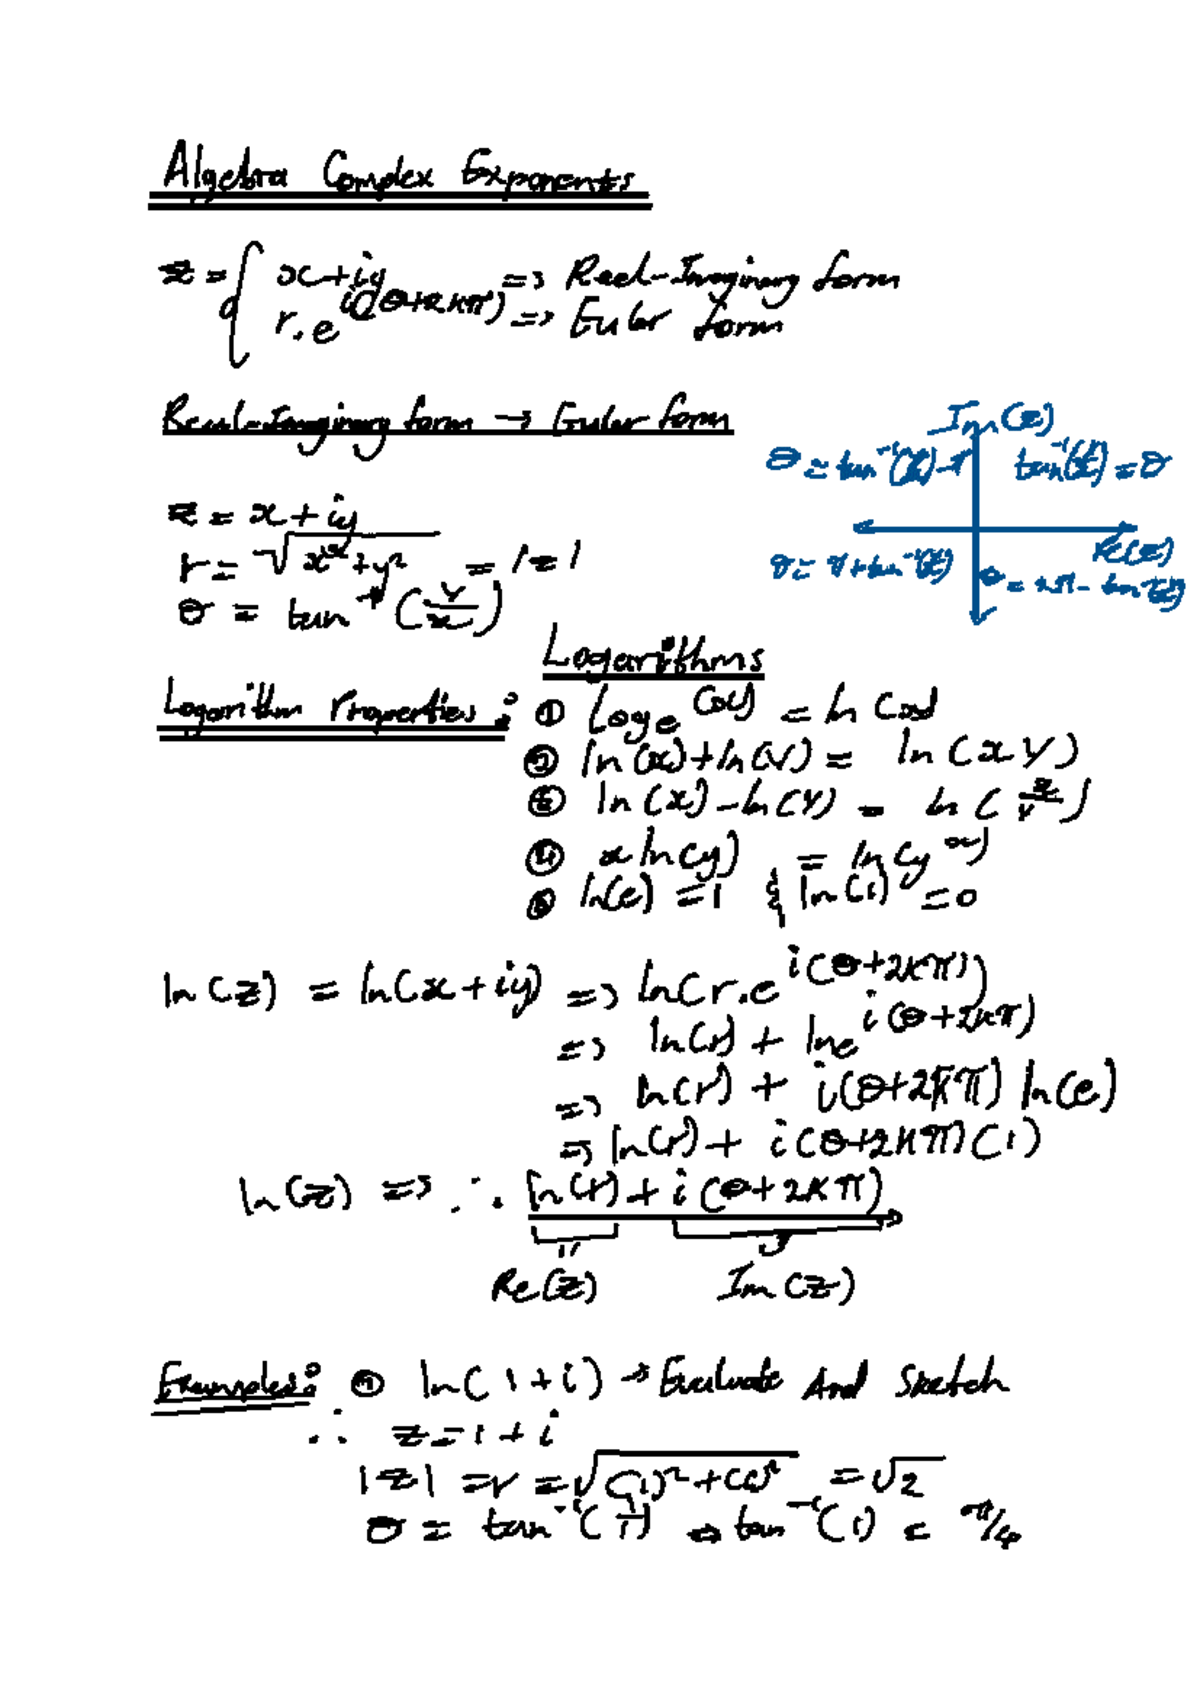 Algebra Complex Exponents
z = { x+iy => Real-Imaginary form
r.e^{i(θ+2kπ)} => Euler form
Real-Imaginary form → Euler form
Im(z)
θ = tan⁻¹(y/x)-π tan⁻¹(y/x) = θ
z = x + iy
Re(z)
r = √(x²+y²) = |z|
θ = π+tan⁻¹(y/x) θ = 2π - tan⁻¹(y/x)
θ = tan⁻¹(y/x)
Logarithms
Logarithm Properties: ① log e^{(x)} = ln(x)
② ln(x)+ln(y) = ln(xy)
③ ln(x)-ln(y) = ln(x/y)
④ x ln(y) = ln(y^x)
⑤ ln(e) = 1 & ln(1) = 0
ln(z) = ln(x+iy) => ln(r.e^{i(θ+2kπ)})
=> ln(r) + ln e^{i(θ+2kπ)}
=> ln(r) + i(θ+2kπ) ln(e)
=> ln(r) + i(θ+2kπ)(1)
ln(z) => ∴ ln(r) + i(θ+2kπ)
Re(z) Im(z)
Examples: ln(1+i) → Evaluate And Sketch
∴ z = 1 + i
|z| = r = √((1)²+(1)²) = √2
θ = tan⁻¹(1/1) => tan⁻¹(1) = π/4